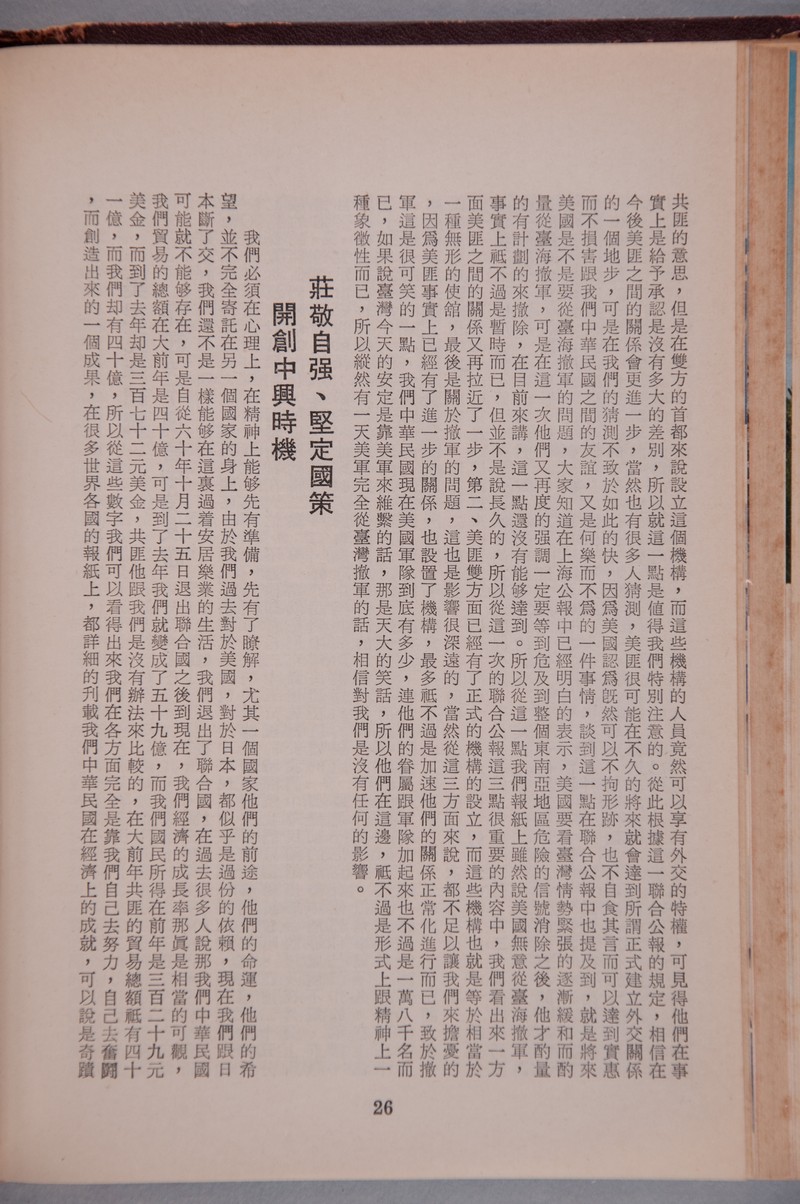 共匪的意思，但是在雙方的首都來說設立這個機構，而這些機構的人員竟然可以享有外交的特權，可見得他們在事
實上是給予承認是沒有多大的差別，所以就這一點是值得我們特別注意的。從此根據這一聯合公報的規定，相信在
今後美匪之間的關係會更進一步，當然也有很多人猜測，美匪很可能在不久的將來就會達到所謂正式建立外交關係
的一個地步，可是在我們的猜測不致於如此的快，因爲美國認爲旣然可以不拘形跡，也不自食其言而可以達到實惠
而不損害跟我們中華民國之間的友誼，又是何樂而不爲的一件事情，談到這一點在聯合公報中也提及到，就是將來
美國是不是要從臺海撤軍的問題，大家知道在上海公報中已經明白的表示，美國要看臺灣情勢緊張的逐漸緩和而酌
量從臺海撤軍，可是在這一次他們又再度的强調一定要等到危及到整個東南亞地區危險的信號消除之後，他才酌量
的有計劃的來撤除，在目前來講，這一點還沒有能够達到。所以從這一點我們報紙上雖然說美國無意從臺海撤軍，
事實上祗不過是暫時而已，但並不是說長久的，所以從這一次的聯合公報這三點很重要的內容中，我們看出來一方
面美匪之間的關係又再拉近了一步，第二、美匪雙方面已經有了正式的機構的設立，而這些機構也就是等於相當於
一種無形的使館，最後是關於撤軍的問題，這也是影響很深遠的，當然從這三方面來說，都不足以讓我們來擔憂的
，因爲美匪事實上已經有了進一步的關係，也設置了機構，最多祗不過是加速他們的關係正常化進行而已，致於撤
軍這是很可笑的一點，我們中華民國現在美國軍隊到底有多少，連他們的眷屬跟軍隊加起來也不過是一萬八千名而
已，如果說臺灣今天的安定是靠美軍來維繫的話，那是天大的笑話，所以他們在這邊，祗不過是形式上跟精神上一
種象徵性而已，所以縱然有一天美軍完全從臺灣撤軍的話，相信對我們是沒有任何的影響。
莊敬自强、堅定國策
開創中興時機
我們必須在心理上，在精神上能够先有準備，先有了瞭解，尤其一個國家他們的前途，他們的命運，他們的希
望，並不完全寄託在另一個國家的身上，由於我們過去對於美國，對於日本，都似乎是過份的依賴，現在我們跟日
本斷了交，我們還不是一樣能够在這裏過着安居樂業的生活，我們退出了聯合國，在過去很多人說那我們中華民國
可能就不能够存在，可是自從六十年十月二十五日退出聯合國之後到現在，我們經濟的成長率那眞是相當的可觀，
我們貿易的總額在大前年是四十億，可是到了去年我們就變成了五十九億，而我們國民所得在前年是三百二十九元
美金，而到了去年却是三百七十二元美金，共匪他跟我們是沒有辦法來比較的，在大前年共匪的貿易總額祗有四十
一億，而我們却有四十億，所以從這些數字我們可以看得出來我們在各方面完全是靠我們自己去努力，自己去奮鬪
，而創造出來的一個成果，在很多世界各國的報紙上，都詳細的刋載我們中華民國在經濟上的成就，可以說是奇蹟
26